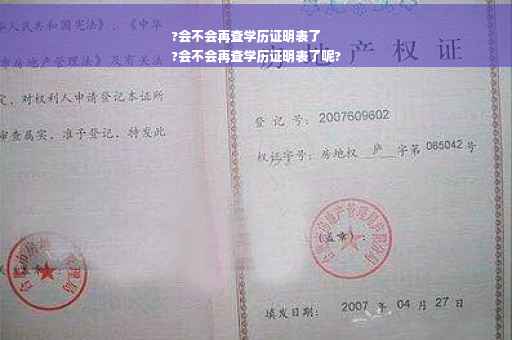 ?会不会再查学历证明表了
?会不会再查学历证明表了呢?
人民共和国宪法》、《中华
房地产管理法》及有关法
定，对权利人申请登记本证所
审查属实，准予登记，特发此
房地产权证
登 记 号： 2007609602
权证字号：房地权 庐 字第 085042 号
(盖章)：
填发日期： 2007 年 04 月 27 日